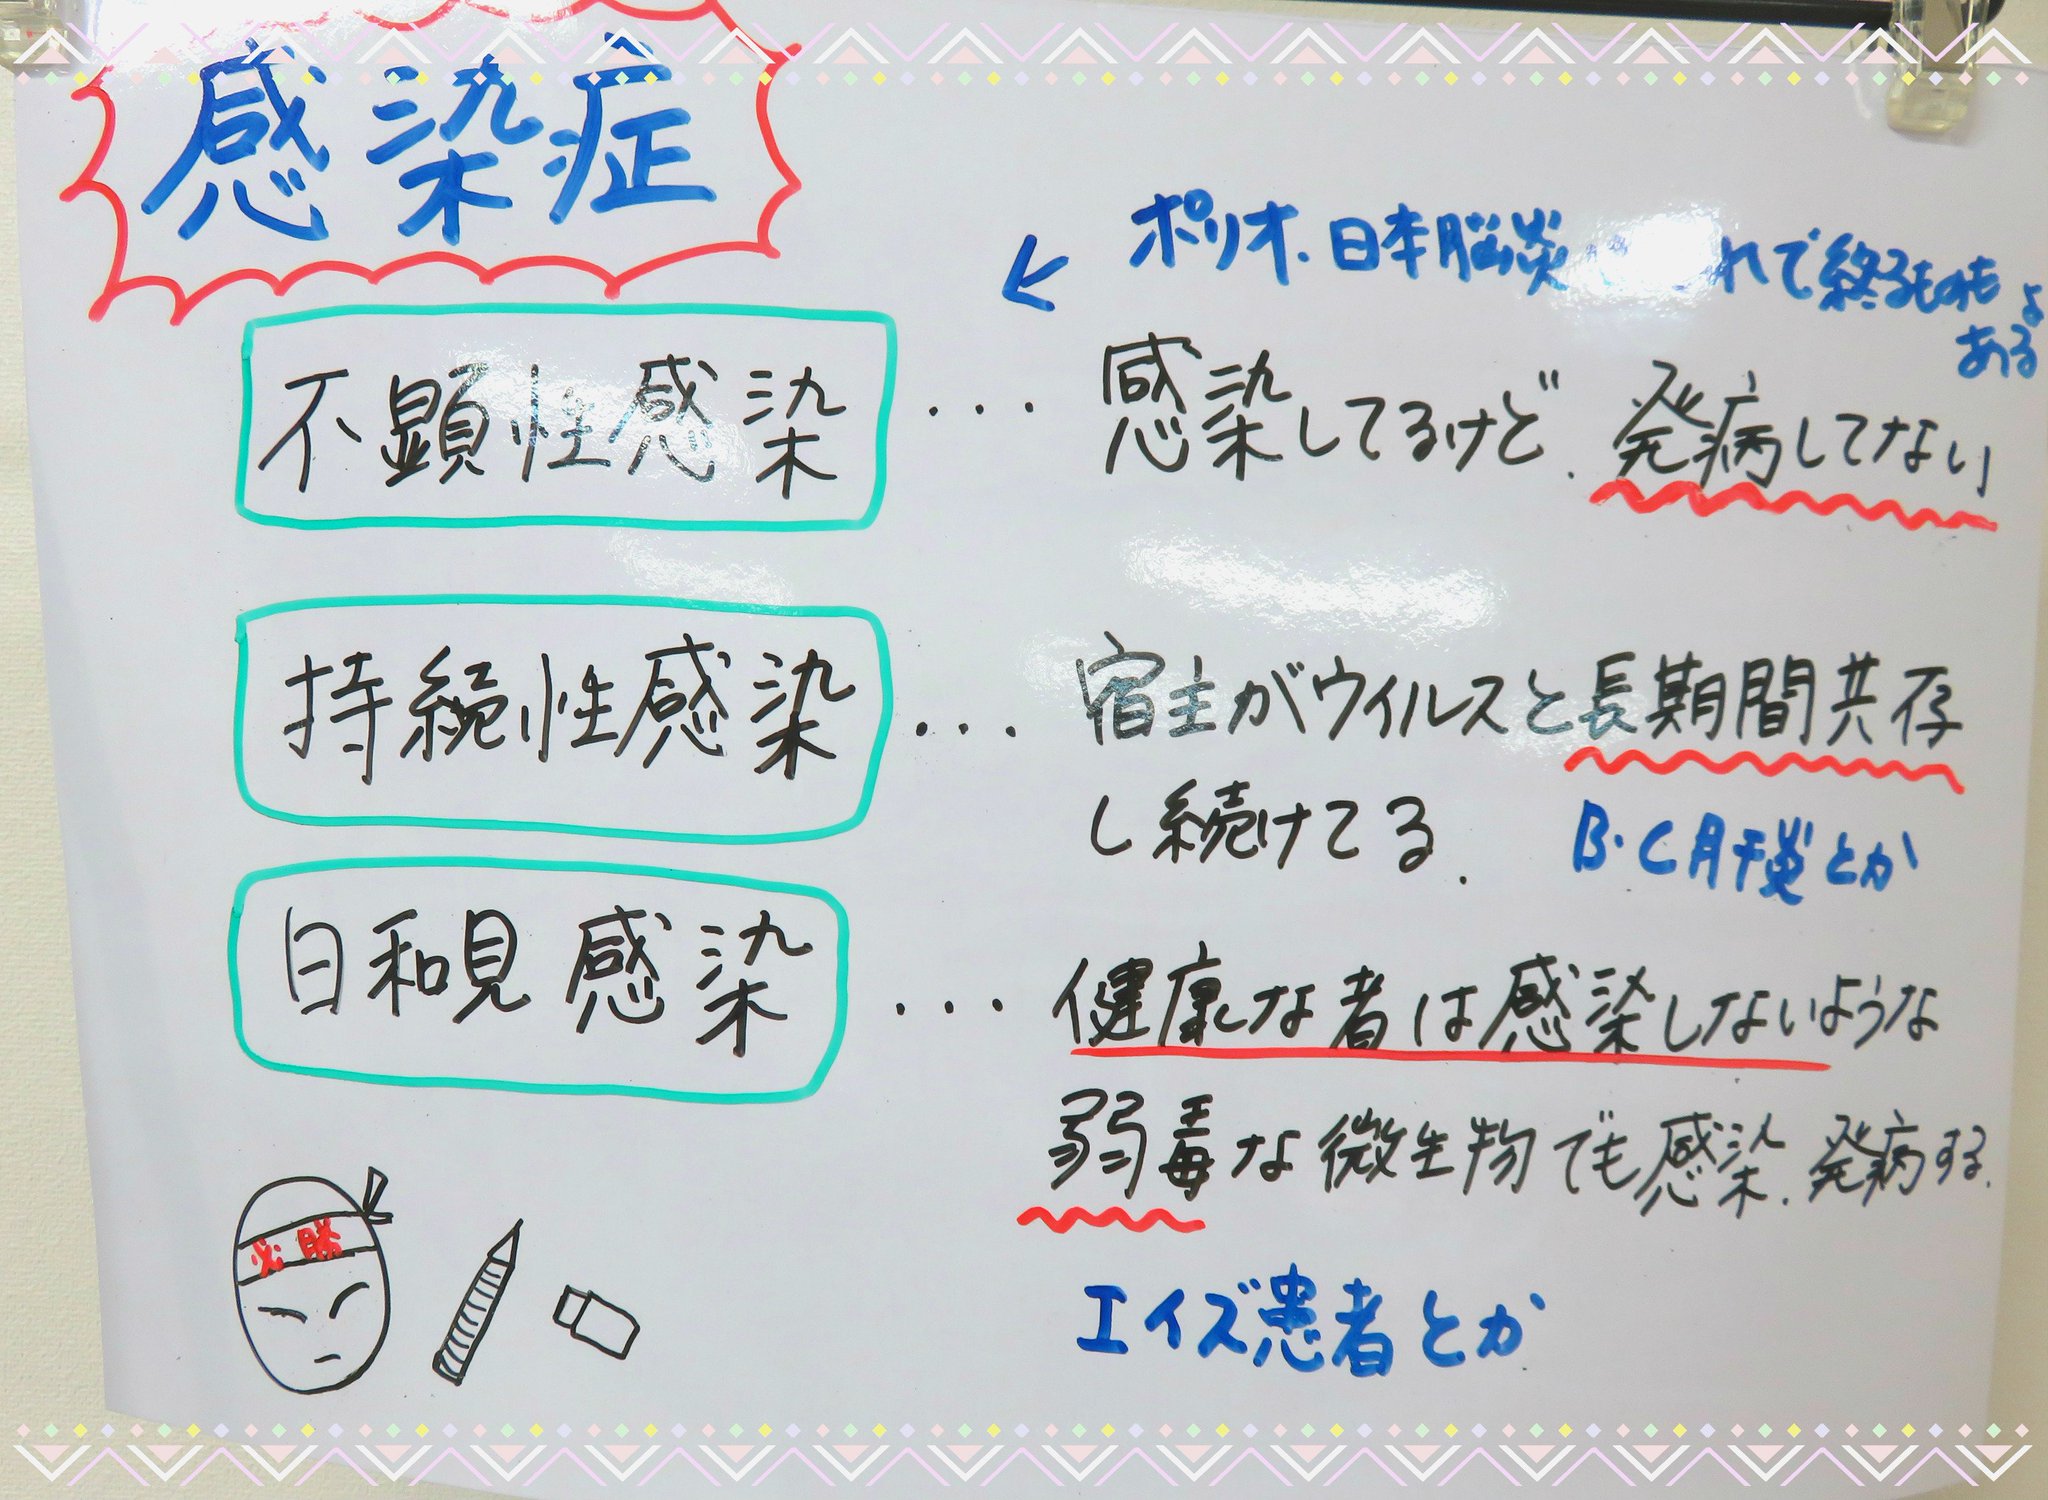 感染症
ポリオ、日本脳炎 れで終るものもよ
ある
不顕性感染 ... 感染してるけど、発病してない
持続性感染 ... 宿主がウイルスと長期間共存
し続けてる.
B・C肝炎とか
日和見感染 ... 健康な者は感染しないような
弱毒な微生物でも感染、発病する.
エイズ患者とか
必勝